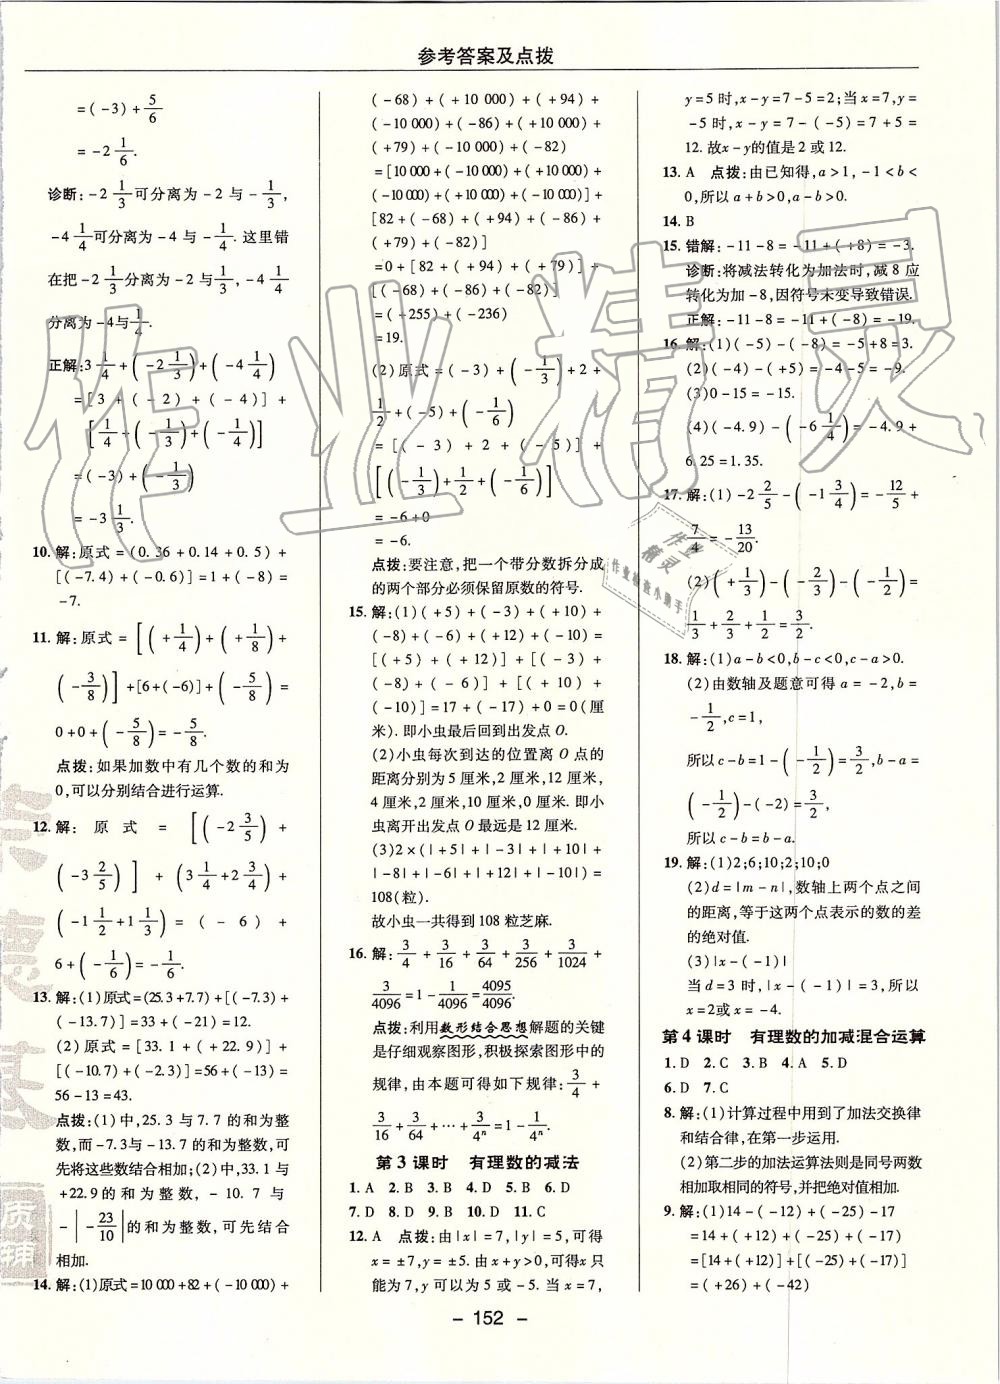 参考答案及点拨
=(-3)+5/6
=-2 1/6.
诊断:-2 1/3可分离为-2与-1/3,
-4 1/4可分离为-4与-1/4.这里错
在把-2 1/3分离为-2与1/3,-4 1/4
分离为-4与1/4.
正解:3 1/4+(-2 1/3)+(-4 1/4)
=[3+(-2)+(-4)]+
[1/4+(-1/3)+(-1/4)]
=(-3)+(-1/3)
=-3 1/3.
10.解:原式=(0.36+0.14+0.5)+
[(-7.4)+(-0.6)]=1+(-8)=
-7.
11.解:原式=[(+1/4)+(+1/8)+
(-3/8)]+[6+(-6)]+(-5/8)=
0+0+(-5/8)=-5/8.
点拨:如果加数中有几个数的和为
0,可以分别结合进行运算.
12.解:原式=[(-2 3/5)+
(-3 2/5)]+(3 1/4+2 3/4)+
(-1 1/2+1 1/3)=(-6)+
6+(-1/6)=-1/6.
13.解:(1)原式=(25.3+7.7)+[(-7.3)+
(-13.7)]=33+(-21)=12.
(2)原式=[33.1+(+22.9)]+
[(-10.7)+(-2.3)]=56+(-13)=
56-13=43.
点拨:(1)中,25.3与7.7的和为整
数,而-7.3与-13.7的和为整数,可
先将这些数结合相加;(2)中,33.1与
+22.9的和为整数,-10.7与
-|-23/10|的和为整数,可先结合
相加.
14.解:(1)原式=10 000+82+(-10 000)+
(-68)+(+10 000)+(+94)+
(-10 000)+(-86)+(+10 000)+
(+79)+(-10 000)+(-82)
=[10 000+(-10 000)+(+10 000)+
(-10 000)+(+10 000)+(-10 000)]+
[82+(-68)+(+94)+(-86)+
(+79)+(-82)]
=0+[82+(+94)+(+79)]+
[(-68)+(-86)+(-82)]
=(+255)+(-236)
=19.
(2)原式=(-3)+(-1/3)+2+
1/2+(-5)+(-1/6)
=[(-3)+2+(-5)]+
[(-1/3)+1/2+(-1/6)]
=-6+0
=-6.
点拨:要注意,把一个带分数拆分成
的两个部分必须保留原数的符号.
15.解:(1)(+5)+(-3)+(+10)+
(-8)+(-6)+(+12)+(-10)=
[(+5)+(+12)]+[(-3)+
(-8)+(-6)]+[(+10)+
(-10)]=17+(-17)+0=0(厘
米).即小虫最后回到出发点O.
(2)小虫每次到达的位置离O点的
距离分别为5厘米,2厘米,12厘米,
4厘米,2厘米,10厘米,0厘米.即小
虫离开出发点O最远是12厘米.
(3)2×(|+5|+|-3|+|+10|+
|-8|+|-6|+|+12|+|-10|)=
108(粒).
故小虫一共得到108粒芝麻.
16.解:3/4+3/16+3/64+3/256+3/1024+
3/4096=1-1/4096=4095/4096.
点拨:利用数形结合思想解题的关键
是仔细观察图形,积极探索图形中的
规律,由本题可得如下规律:3/4+
3/16+3/64+…+3/4ⁿ=1-1/4ⁿ.
第3课时 有理数的减法
1.A 2.B 3.B 4.D 5.D 6.B
7.D 8.D 9.D 10.D 11.C
12.A 点拨:由|x|=7,|y|=5,可得
x=±7,y=±5.由x+y>0,可得x只
能为7,y可以为5或-5.当x=7,
y=5时,x-y=7-5=2;当x=7,y=
-5时,x-y=7-(-5)=7+5=
12.故x-y的值是2或12.
13.A 点拨:由已知得,a>1,-1<b<
0,所以a+b>0,a-b>0.
14.B
15.错解:-11-8=-11+(+8)=-3.
诊断:将减法转化为加法时,减8应
转化为加-8,因符号未变导致错误.
正解:-11-8=-11+(-8)=-19.
16.解:(1)(-5)-(-8)=-5+8=3.
(2)(-4)-(+5)=-4-5=-9.
(3)0-15=-15.
(4)(-4.9)-(-6 1/4)=-4.9+
6.25=1.35.
17.解:(1)-2 2/5-(-1 3/4)=-12/5+
7/4=-13/20.
(2)(+1/3)-(-2/3)-(-1/2)=
1/3+2/3+1/2=3/2.
18.解:(1)a-b<0,b-c<0,c-a>0.
(2)由数轴及题意可得a=-2,b=
-1/2,c=1,
所以c-b=1-(-1/2)=3/2,b-a=
(-1/2)-(-2)=3/2,
所以c-b=b-a.
19.解:(1)2;6;10;2;10;0
(2)d=|m-n|,数轴上两个点之间
的距离,等于这两个点表示的数的差
的绝对值.
(3)|x-(-1)|
当d=3时,|x-(-1)|=3,所以
x=2或x=-4.
第4课时 有理数的加减混合运算
1.D 2.C 3.B 4.A 5.D
6.D 7.C
8.解:(1)计算过程中用到了加法交换律
和结合律,在第一步运用.
(2)第二步的加法运算法则是同号两数
相加取相同的符号,并把绝对值相加.
9.解:(1)14-(-12)+(-25)-17
=14+(+12)+(-25)+(-17)
=[14+(+12)]+[(-25)+(-17)]
=(+26)+(-42)
- 152 -
作业精灵
作业
精灵
作业检查小助手